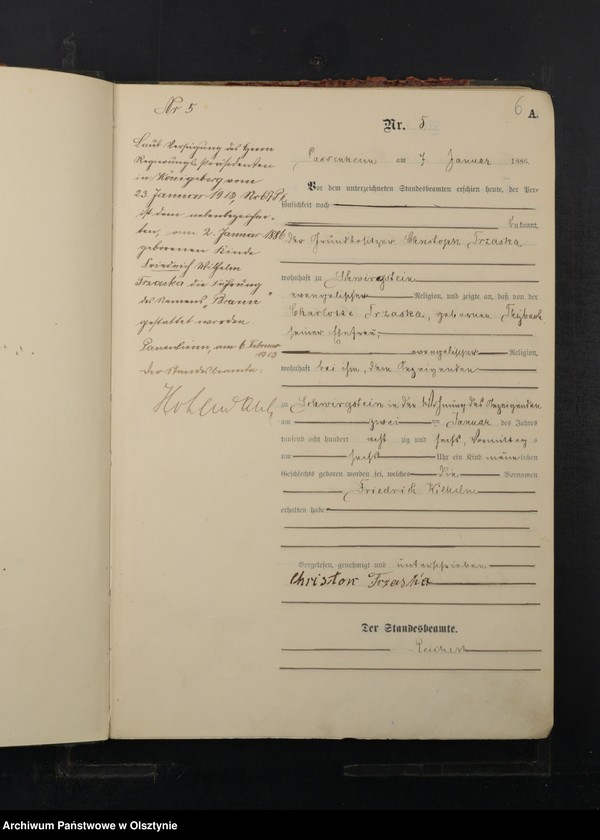 Nr 5
Laut Verfügung des Herrn
Regierungs-Präsidenten
in Königsberg vom
23. Januar 1913,
ist dem nebenbezeichne-
ten, am 2. Januar 1886
geborenen Kinde
Friedrich Wilhelm
Trzaska die Führung
des Namens „Braun“
gestattet worden.
am 6. Februar
1913
Der Standesbeamte:
6
A.
Nr. 5
Passenheim am 7 Januar 1886.
Vor dem unterzeichneten Standesbeamten erschien heute, der Per-
sönlichkeit nach
bekannt,
der Grundbesitzer Christoph Trzaska
wohnhaft zu Schwirgstein
evangelischer Religion, und zeigte an, daß von der
Charlotte Trzaska, geborenen
seiner Ehefrau,
evangelischer Religion,
wohnhaft bei ihm, dem Anzeigenden
zu Schwirgstein in der Wohnung des Anzeigenden
am zwei ten Januar des Jahres
tausend acht hundert acht zig und sechs, Vormittag s
um sechs Uhr ein Kind männlichen
Geschlechts geboren worden sei, welches die Vornamen
Friedrich Wilhelm
erhalten habe
Vorgelesen, genehmigt und unterschrieben
Christop Trzaska
Der Standesbeamte.
Archiwum Państwowe w Olsztynie